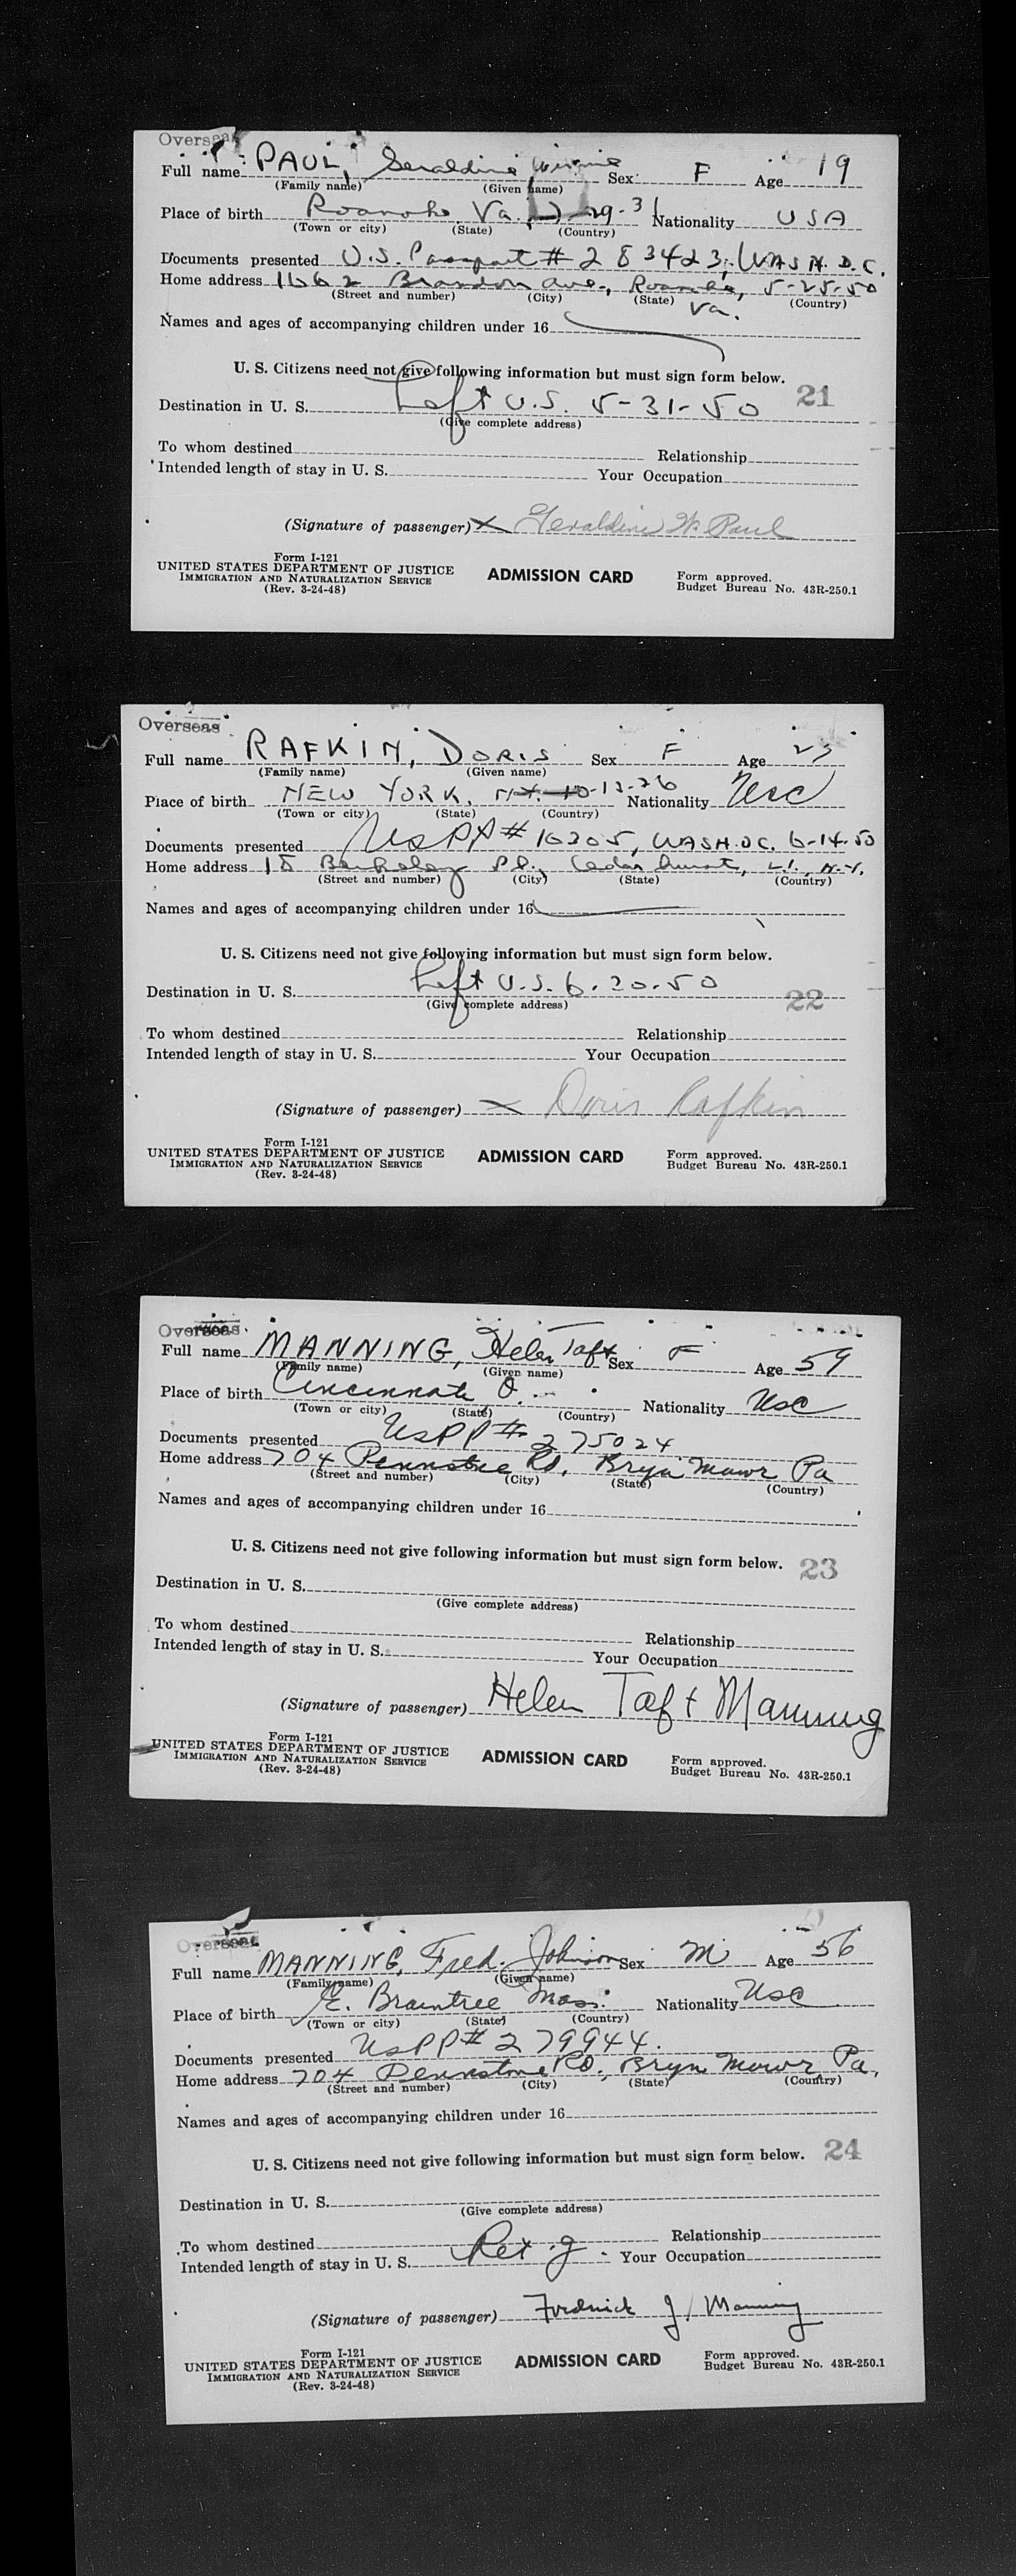 Overseas
Full name PAUL, Geraldine Sex F Age 19
(Family name) (Given name)
Place of birth Roanoke, Va. 7-29-31 Nationality USA
(Town or city) (State) (Country)
Documents presented U.S. Passport # 283423, WASH. D.C.
Home address 1662 Brandon Ave., Roanoke, 5-25-50
(Street and number) (City) (State) Va. (Country)
Names and ages of accompanying children under 16
U. S. Citizens need not give following information but must sign form below.
Destination in U. S. Left U.S. 5-31-50 21
(Give complete address)
To whom destined Relationship
Intended length of stay in U. S. Your Occupation
(Signature of passenger) X Geraldine W. Paul
Form I-121
UNITED STATES DEPARTMENT OF JUSTICE
IMMIGRATION AND NATURALIZATION SERVICE
(Rev. 3-24-48)
ADMISSION CARD
Form approved.
Budget Bureau No. 43R-250.1
Overseas
Full name RAFKIN, DORIS Sex F Age 23
(Family name) (Given name)
Place of birth NEW YORK, N.Y. 10-13-26 Nationality USC
(Town or city) (State) (Country)
Documents presented USPP # 16305, WASH. DC. 6-14-50
Home address 18 Berkeley Pl., Cedarhurst, L.I., N.Y.
(Street and number) (City) (State) (Country)
Names and ages of accompanying children under 16
U. S. Citizens need not give following information but must sign form below.
Destination in U. S. Left U.S. 6-20-50
(Give complete address) 22
To whom destined Relationship
Intended length of stay in U. S. Your Occupation
(Signature of passenger) X Doris Rafkin
Form I-121
UNITED STATES DEPARTMENT OF JUSTICE
IMMIGRATION AND NATURALIZATION SERVICE
(Rev. 3-24-48)
ADMISSION CARD
Form approved.
Budget Bureau No. 43R-250.1
Overseas
Full name MANNING, Helen Taft Sex F Age 59
(Family name) (Given name)
Place of birth Cincinnati O. Nationality USC
(Town or city) (State) (Country)
Documents presented USPP # 275024
Home address 704 Pennstone Rd, Bryn Mawr Pa
(Street and number) (City) (State) (Country)
Names and ages of accompanying children under 16
U. S. Citizens need not give following information but must sign form below. 23
Destination in U. S.
(Give complete address)
To whom destined Relationship
Intended length of stay in U. S. Your Occupation
(Signature of passenger) Helen Taft Manning
Form I-121
UNITED STATES DEPARTMENT OF JUSTICE
IMMIGRATION AND NATURALIZATION SERVICE
(Rev. 3-24-48)
ADMISSION CARD
Form approved.
Budget Bureau No. 43R-250.1
Overseas
Full name MANNING, Fred. Johnson Sex M Age 56
(Family name) (Given name)
Place of birth E. Braintree Mass. Nationality USC
(Town or city) (State) (Country)
Documents presented USPP # 279944.
Home address 704 Pennstone Rd., Bryn Mawr Pa,
(Street and number) (City) (State) (Country)
Names and ages of accompanying children under 16
U. S. Citizens need not give following information but must sign form below. 24
Destination in U. S.
(Give complete address)
To whom destined Relationship
Intended length of stay in U. S. Your Occupation
(Signature of passenger) Frederick J. Manning
Form I-121
UNITED STATES DEPARTMENT OF JUSTICE
IMMIGRATION AND NATURALIZATION SERVICE
(Rev. 3-24-48)
ADMISSION CARD
Form approved.
Budget Bureau No. 43R-250.1